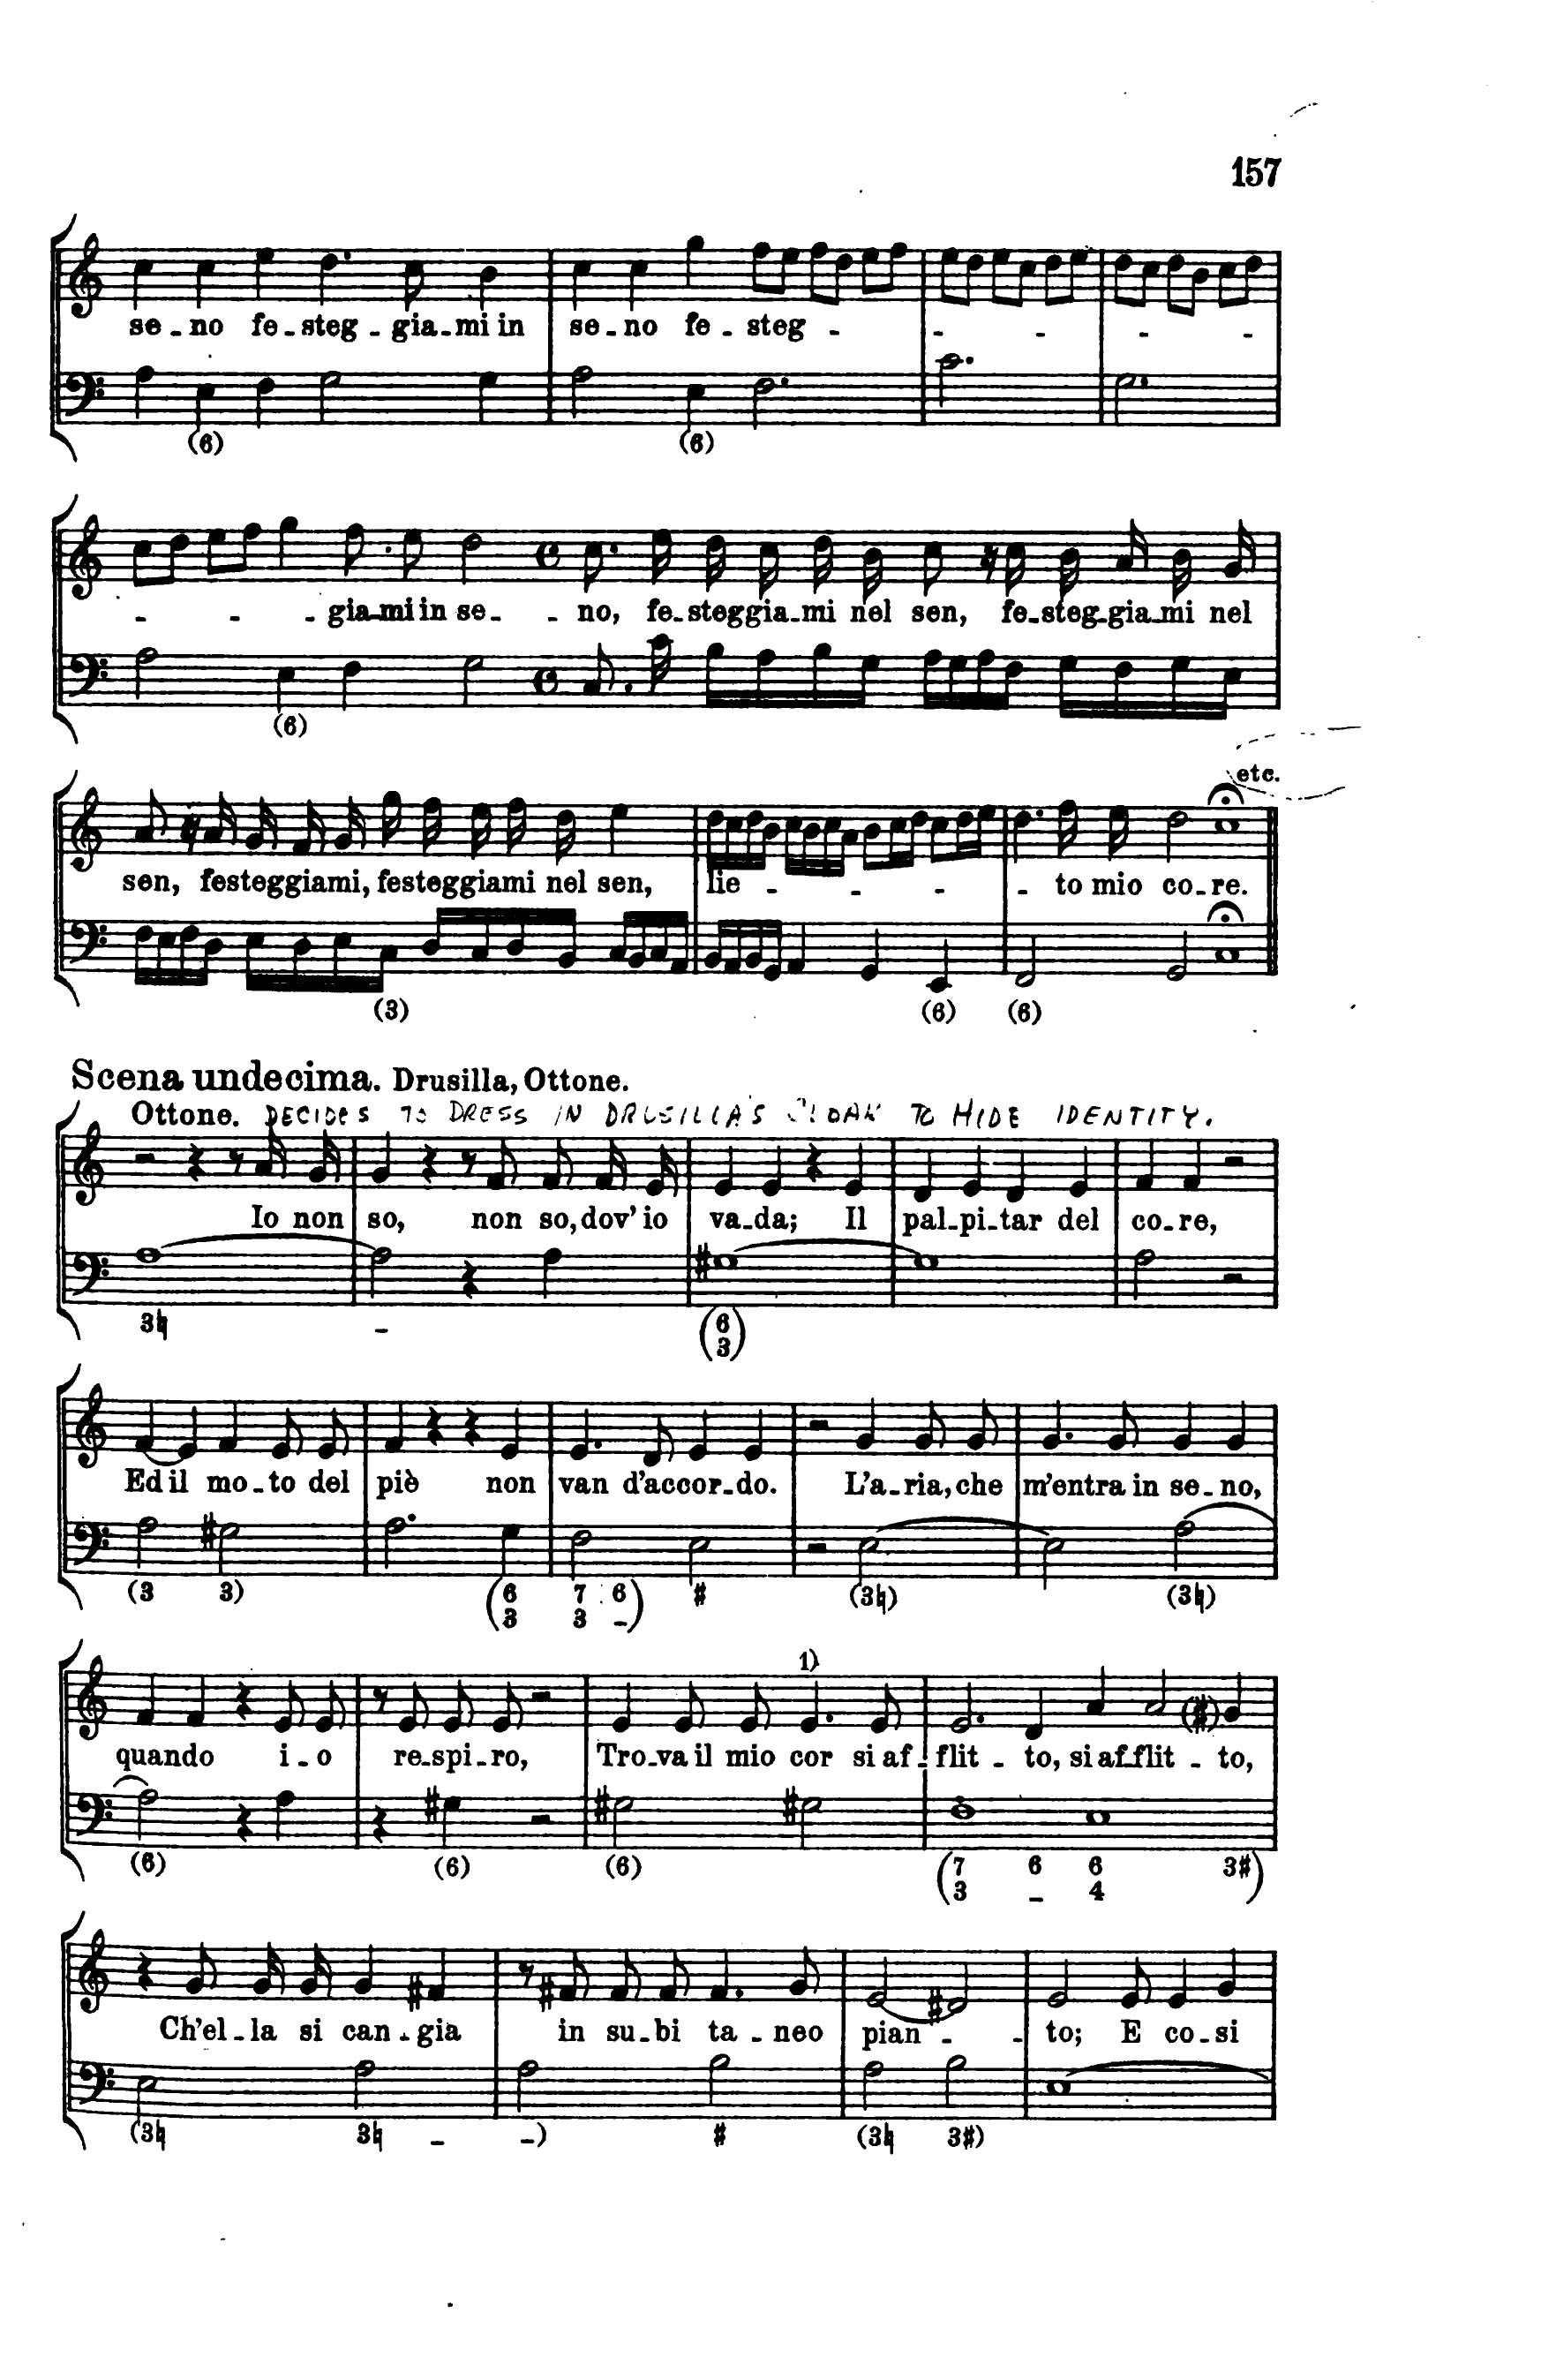 157
se - no fe - steg - gia - mi in se - no fe - steg -
(6) (6)
- - - gia - mi in se - - no, fe - steggia - mi nel sen, fe - steg - gia - mi nel
(6)
etc.
sen, festeggiami, festeggiami nel sen, lie - - - - to mio co - re.
(3) (6) (6)
Scena undecima. Drusilla, Ottone.
Ottone. DECIDES TO DRESS IN DRUSILLA'S CLOAK TO HIDE IDENTITY.
Io non so, non so, dov' io va - da; Il pal - pi - tar del co - re,
3♮ - (6 3)
Ed il mo - to del piè non van d'accor - do. L'a - ria, che m'entra in se - no,
(3 3) (6 3 7 3 6 -) # (3♮) (3♮)
1)
quando i - o re - spi - ro, Tro - va il mio cor si af - flit - to, si af - flit - to,
(6) (6) (6) (7 3 6 - 6 4 3#)
Ch'el - la si can - gia in su - bi ta - neo pian - - to; E co - si
(3♮ 3♮ - -) # (3♮ 3#)